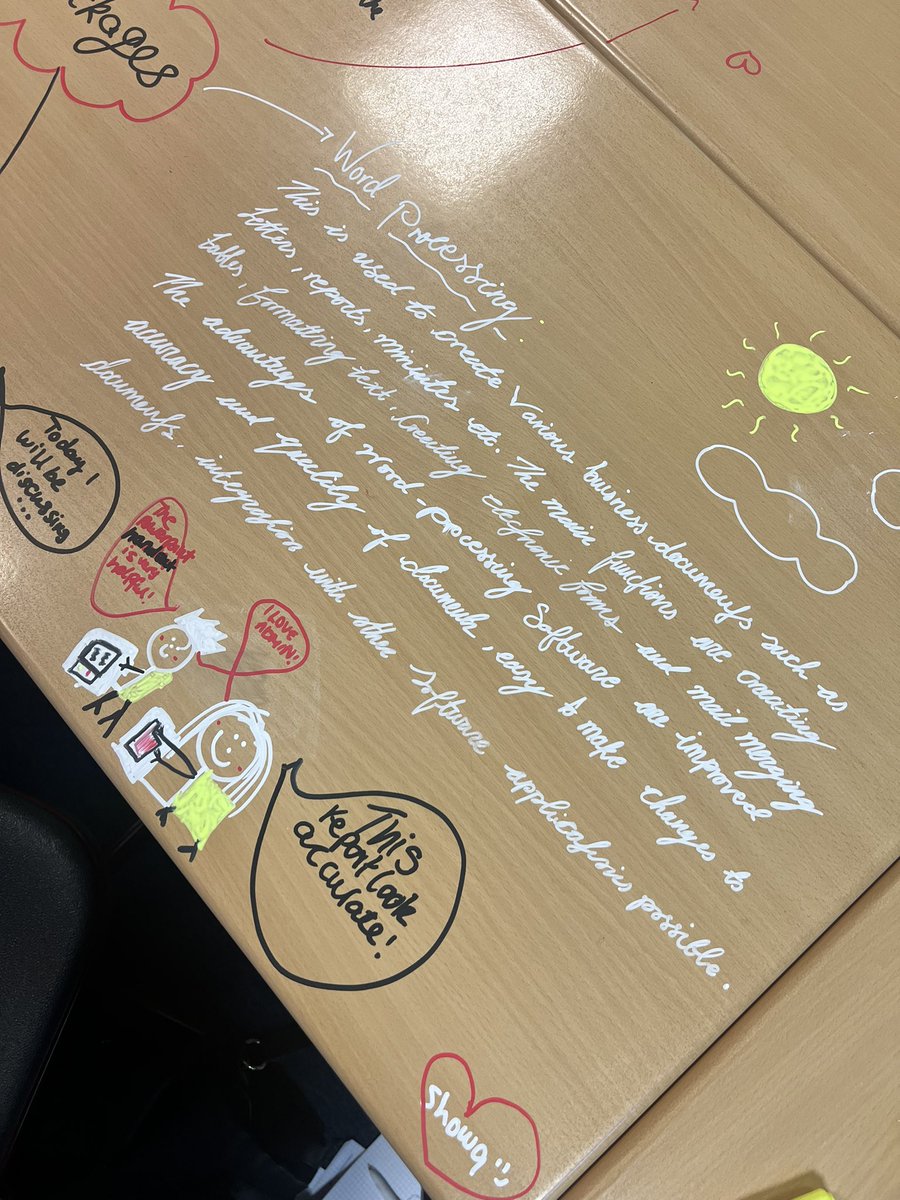 ckages
Word Processing:-
This is used to create various business documents such as
letters, reports, minutes etc. The main functions are creating
tables, formatting text, creating electronic forms and mail merging
The advantages of word-processing software are improved
accuracy and quality of documents, easy to make changes to
documents, integration with other software applications possible.
Today I
will be
discussing
...
The
powerpoint
handout
is very
helpful!
I LOVE
ADMIN!
This
report look
accurate!
Showq